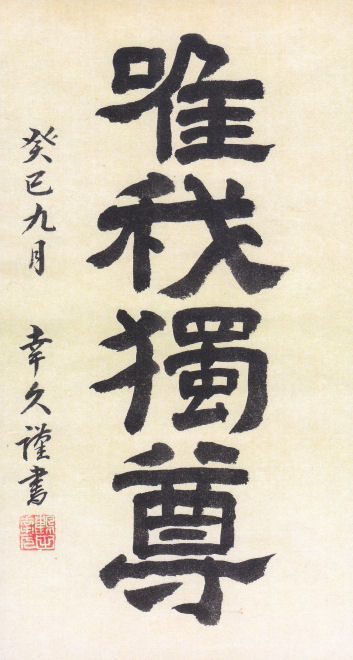 唯我獨尊
癸巳九月 幸久謹書